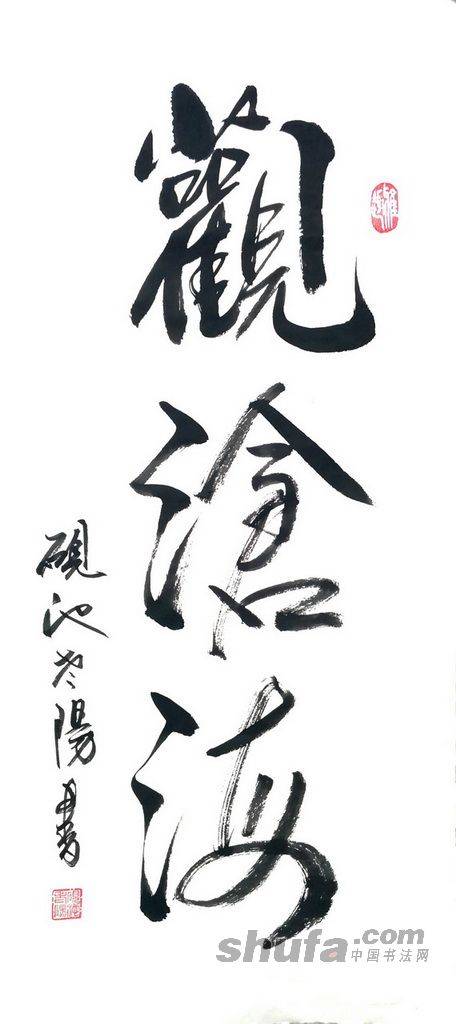 觀滄海
硯池老陽書
shufa.com
中国书法网